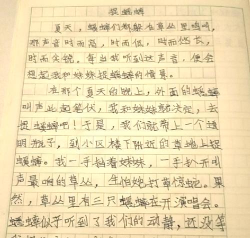 捉蟋蟀
夏天，蟋蟀们都躲在草丛里鸣叫，
那声音时而高，时而低，时而悠长，
时而尖锐。每当我听到这声音，便会
想起我和妹妹捉蟋蟀的情景。
在那个夏天的晚上，外面的蟋蟀
叫声此起彼伏，我和妹妹就决定，去
捉蟋蟀吧！于是，我们就带上一个透
明瓶子，到小区楼下附近的草地上捉
蟋蟀。我一手挡着妹妹，一手扒开叫
声最响的草丛，生怕她打草惊蛇。果
然，草丛里有三只蟋蟀在开演唱会。
蟋蟀似乎听到了我们的动静，还没等